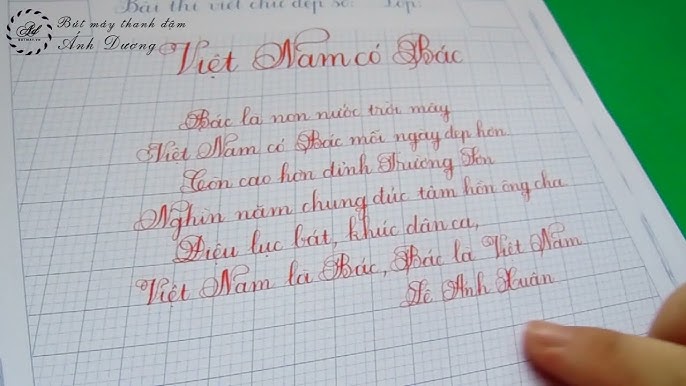 Bút máy thanh đậm
Ánh Dương
Bài thi viết chữ đẹp số: Lớp:
Việt Nam có Bác
Bác là non nước trời mây
Việt Nam có Bác mỗi ngày đẹp hơn
Còn cao hơn đỉnh Trường Sơn
Nghìn năm chung đúc tâm hồn ông cha
Điệu lục bát, khúc dân ca,
Việt Nam là Bác, Bác là Việt Nam
Lê Anh Xuân